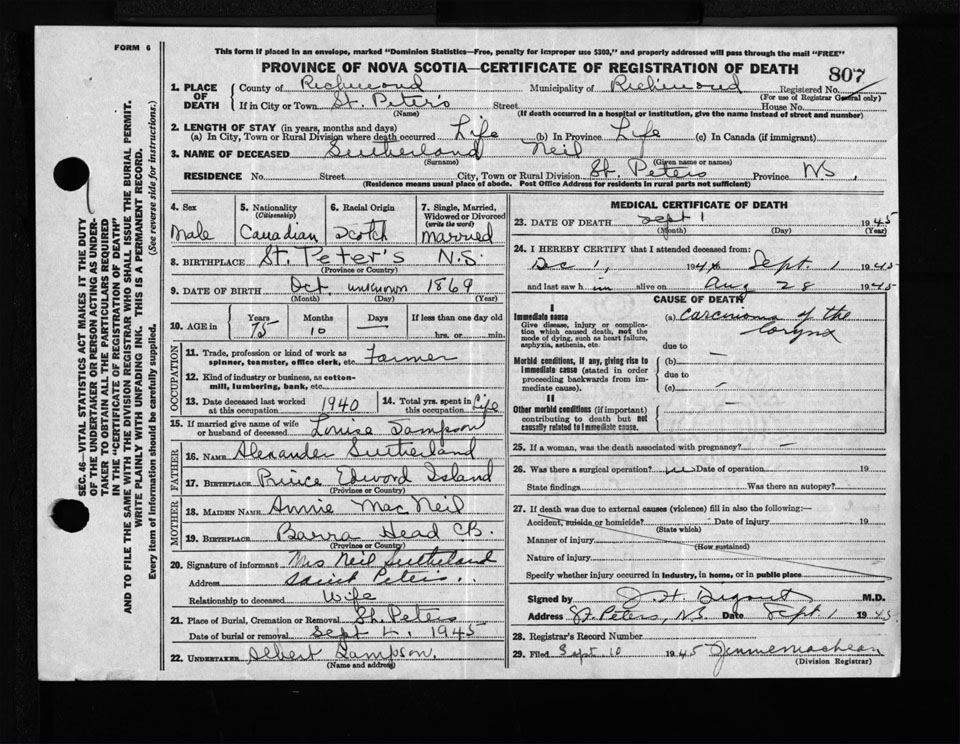 FORM 6
This form if placed in an envelope, marked "Dominion Statistics—Free, penalty for improper use $300," and properly addressed will pass through the mail "FREE"
PROVINCE OF NOVA SCOTIA—CERTIFICATE OF REGISTRATION OF DEATH
807
SEC. 46—VITAL STATISTICS ACT MAKES IT THE DUTY
OF THE UNDERTAKER OR PERSON ACTING AS UNDER-
TAKER TO OBTAIN ALL THE PARTICULARS REQUIRED
IN THE "CERTIFICATE OF REGISTRATION OF DEATH"
AND TO FILE THE SAME WITH THE DIVISION REGISTRAR WHO SHALL ISSUE THE BURIAL PERMIT.
WRITE PLAINLY WITH UNFADING INK. THIS IS A PERMANENT RECORD.
Every item of Information should be carefully supplied. (See reverse side for instructions.)
1. PLACE OF DEATH
County of Richmond Municipality of Richmond Registered No.
(For use of Registrar General only)
If in City or Town St. Peter's Street House No.
(Name) (If death occurred in a hospital or institution, give the name instead of street and number)
2. LENGTH OF STAY (in years, months and days)
(a) In City, Town or Rural Division where death occurred Life (b) In Province Life (c) In Canada (if immigrant)
3. NAME OF DECEASED Sutherland Neil
(Surname) (Given name or names)
RESIDENCE No. Street City, Town or Rural Division St. Peters Province NS,
(Residence means usual place of abode. Post Office Address for residents in rural parts not sufficient)
4. Sex Male
5. Nationality (Citizenship) Canadian
6. Racial Origin Scotch
7. Single, Married, Widowed or Divorced (write the word) Married
8. BIRTHPLACE St. Peter's N.S.
(Province or Country)
9. DATE OF BIRTH Oct. unknown 1869
(Month) (Day) (Year)
10. AGE in Years 75 Months 10 Days — If less than one day old hrs. or min.
OCCUPATION
11. Trade, profession or kind of work as spinner, teamster, office clerk, etc. Farmer
12. Kind of industry or business, as cotton-mill, lumbering, bank, etc.
13. Date deceased last worked at this occupation 1940
14. Total yrs. spent in this occupation Life
15. If married give name of wife or husband of deceased Louise Sampson
FATHER
16. NAME Alexander Sutherland
17. BIRTHPLACE Prince Edward Island
(Province or Country)
MOTHER
18. MAIDEN NAME Annie Mac Neil
19. BIRTHPLACE Barra Head CB.
(Province or Country)
20. Signature of informant Mrs Neil Sutherland
Address Saint Peters.
Relationship to deceased Wife
21. Place of Burial, Cremation or Removal St. Peters
Date of burial or removal Sept 4, 1945
22. UNDERTAKER Albert Sampson.
(Name and address)
MEDICAL CERTIFICATE OF DEATH
23. DATE OF DEATH Sept 1 1945
(Month) (Day) (Year)
24. I HEREBY CERTIFY that I attended deceased from:
Dec 1, 194 to Sept. 1 1945
and last saw him alive on Aug 28 1945
CAUSE OF DEATH
I
Immediate cause (a) Carcinoma of the Larynx
Give disease, injury or complication which caused death, not the mode of dying, such as heart failure, asphyxia, asthenia, etc.
due to
Morbid conditions, if any, giving rise to immediate cause (stated in order proceeding backwards from immediate cause).
(b) —
due to
(c) —
II
Other morbid conditions (if important) contributing to death but not causally related to immediate cause. —
25. If a woman, was the death associated with pregnancy? —
26. Was there a surgical operation? no Date of operation 19
State findings Was there an autopsy?
27. If death was due to external causes (violence) fill in also the following:—
Accident, suicide or homicide? Date of injury 19
(State which)
Manner of injury
(How sustained)
Nature of injury
Specify whether injury occurred in industry, in home, or in public place
Signed by J. H. M.D.
Address St. Peters, N.S. Date Sept. 1 1945
28. Registrar's Record Number
29. Filed Sept. 10 1945
(Division Registrar)